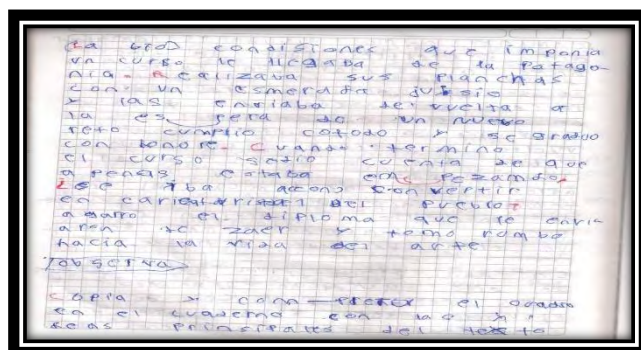 condisiones que imponia
un curso le llegaba de la patago
nia. Realizaba sus planchas
con un esmerdfa juisio
y las enviaba de vuelta a
la es pera de un nuevo
reto cumplio cotodo y se grado
con honore. Cuando termino
el curso sedio cuenta de que
apenas estaba em pezando,
ise iba acconvertir
en caricaturista del pueblo.
agarro el diploma que le envia
aron y tomo rumbo
hacia la vida del arte
observa
copia y el quadro
en el cuaderno con las
deas principales del texto